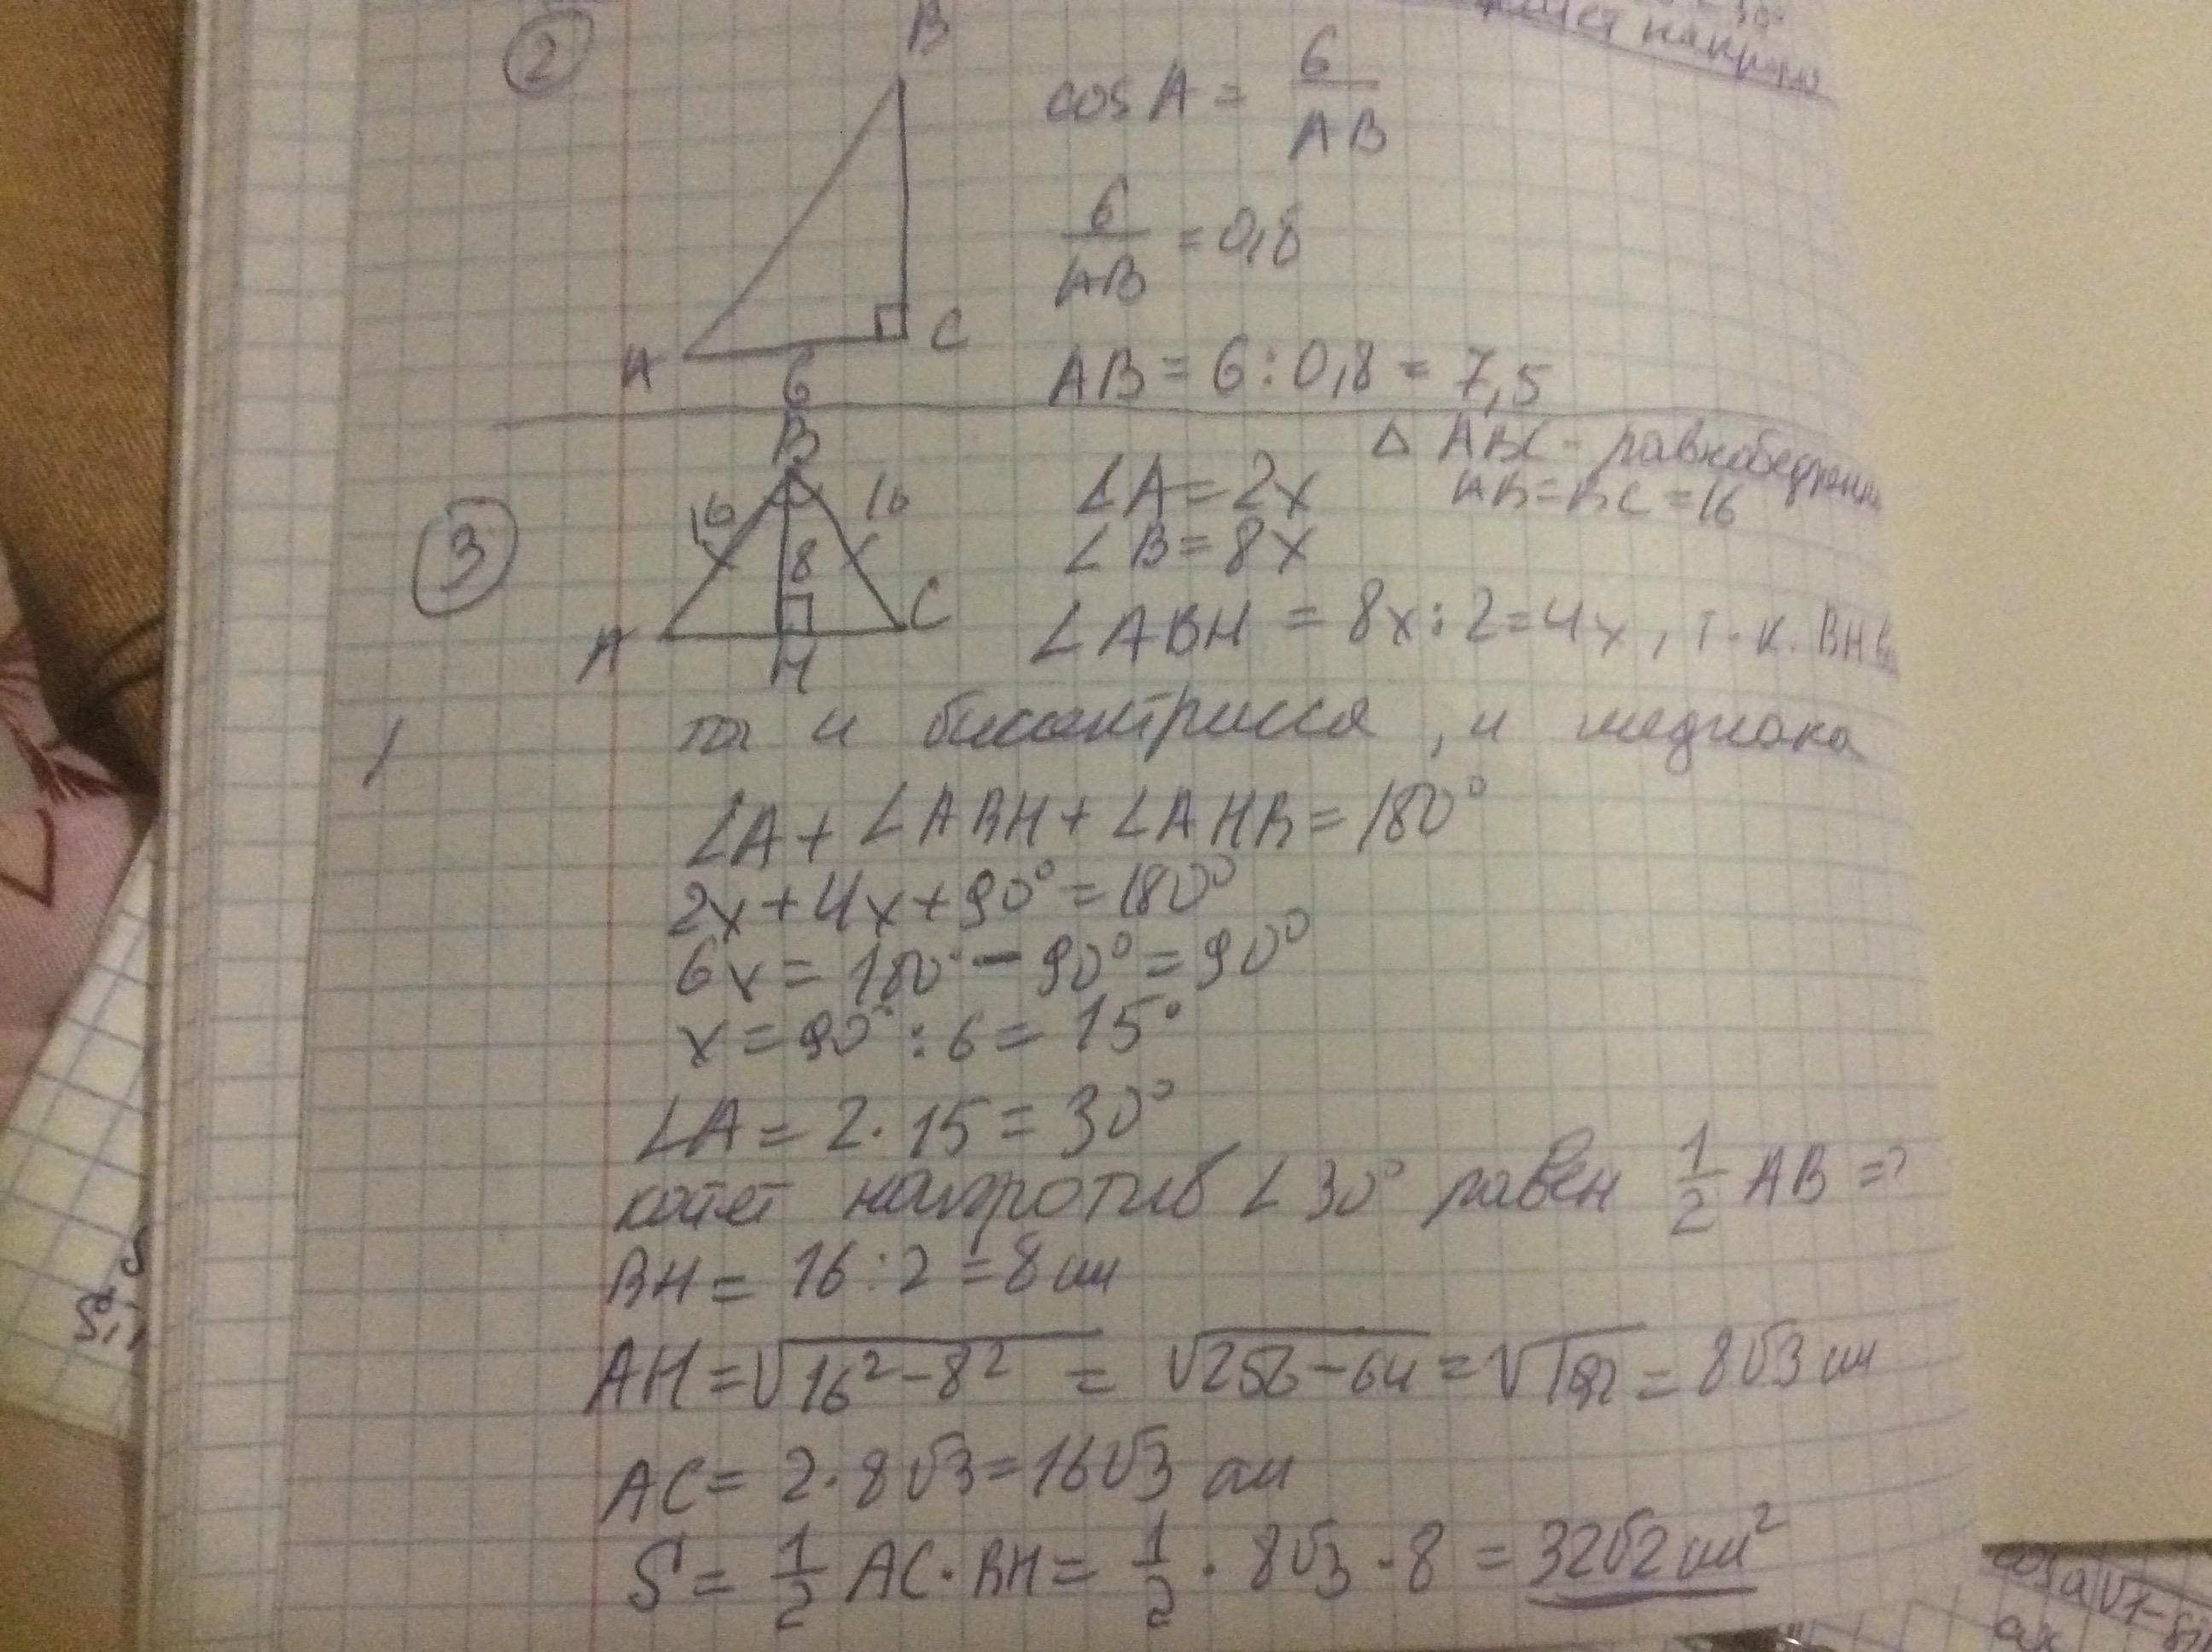 напротив
②
B
cos A = 6/AB
6/AB = 0,8
A
C
6
AB = 6 : 0,8 = 7,5
③
B
16
16
8
A
H
C
∠A = 2x
∠B = 8x
△ ABC - равнобедренн
AB = BC = 16
∠ABH = 8x : 2 = 4x, т.к. BH вы
та и биссектрисса, и медиана
∠A + ∠ABH + ∠AHB = 180°
2x + 4x + 90° = 180°
6x = 180° - 90° = 90°
x = 90° : 6 = 15°
∠A = 2 · 15 = 30°
катет напротив ∠30° равен 1/2 AB =>
BH = 16 : 2 = 8 см
AH = √16² - 8² = √256 - 64 = √192 = 8√3 см
AC = 2 · 8√3 = 16√3 см
S = 1/2 AC · BH = 1/2 · 8√3 · 8 = 32√2 см²
cos a √1-s